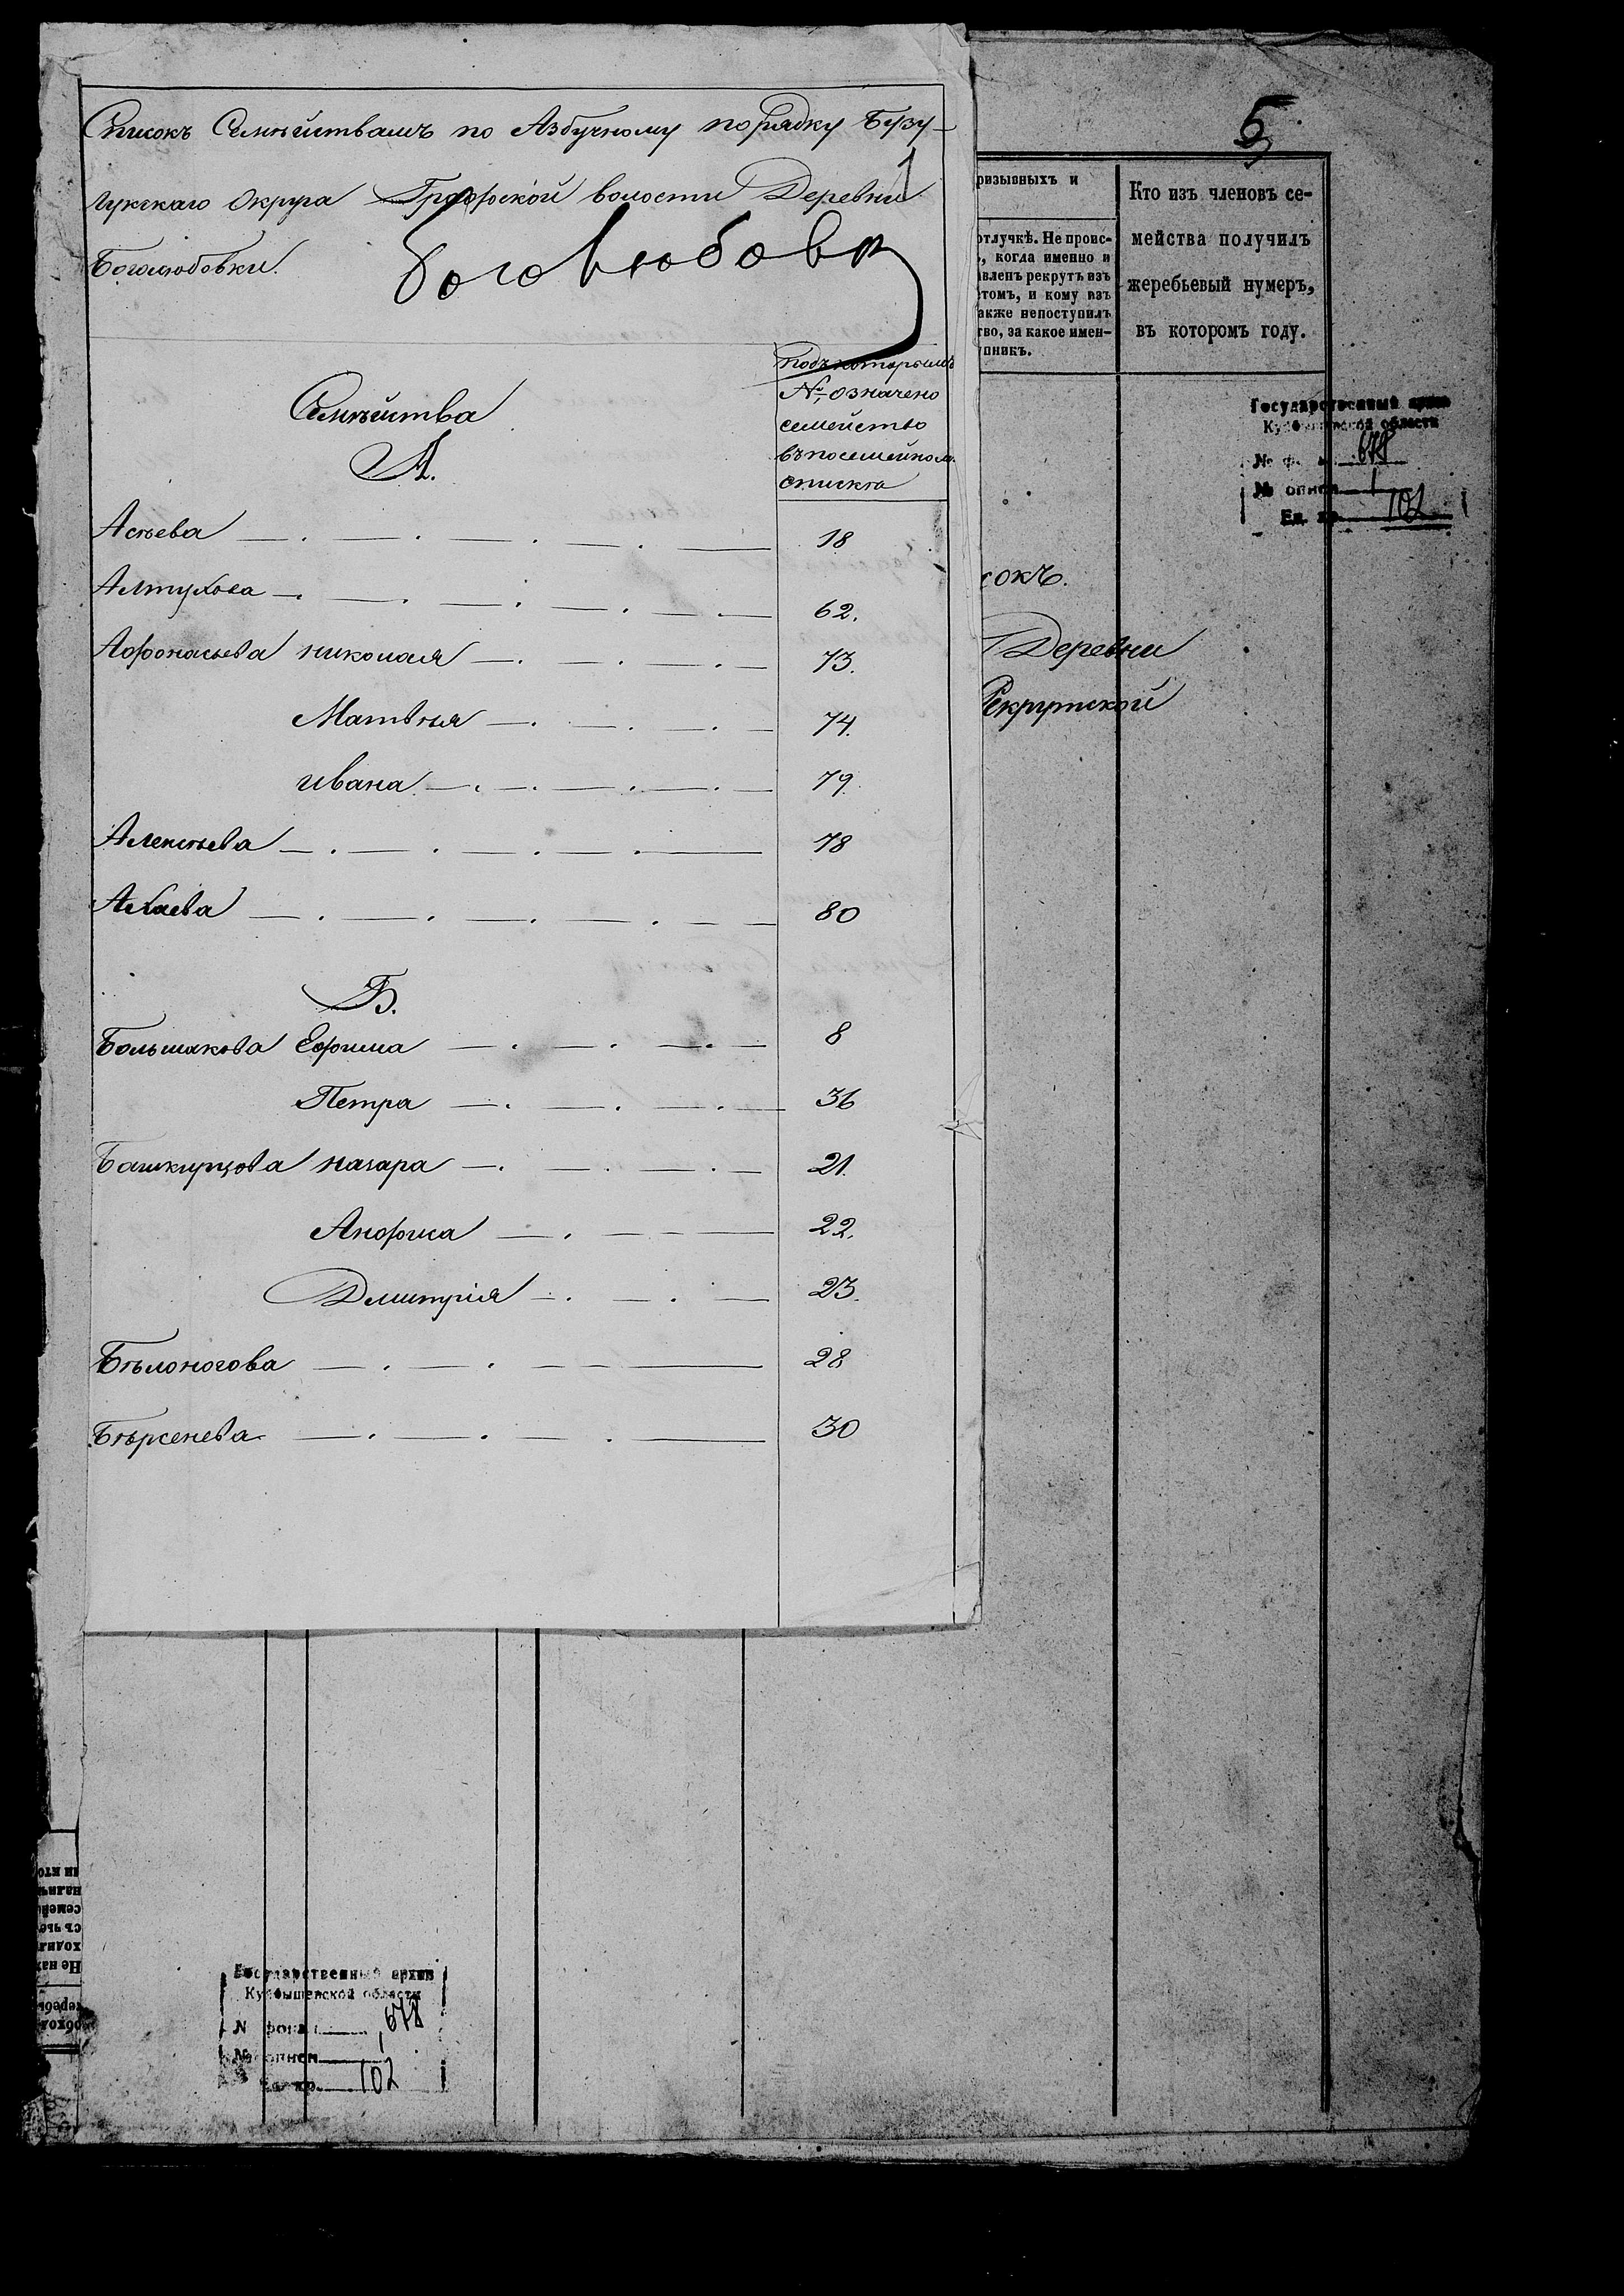 Списокъ Семѣйствамъ по Азбучному порядку Бузу-
лукскаго Округа Графской волости Деревни
Боголюбовки.
1
Боголюбовк
Семѣйства
Подъ которымъ
№ означено
семейство
въ посемейном.
спискѣ
А.
Асѣева — 18
Алтухова — 62.
Афонасьева николая — 73.
Матвѣя — 74.
ивана — 79.
Алексѣева — 78
Ахаева — 80
Б.
Большакова Ефима — 8
Петра — 36
Башкирцова назара — 21.
Анфима — 22.
Дмитрія — 23.
Бѣлоногова — 28
Бѣрсенева — 30
5
ризывныхъ и
отлучкѣ. Не проис-
ь, когда именно и
авленъ рекрутъ изъ
томъ, и кому изъ
акже непоступилъ
тво, за какое имен-
упникъ.
Кто изъ членовъ се-
мейства получилъ
жеребьевый нумеръ,
въ которомъ году.
Государственный архив
Куйбышевской области
№ ф. 678
№ описи 1
Ед. хр. 102
сокъ.
Деревни
Рекрутской
Государственный архив
Куйбышевской области
N фонда 678
№ описи 1
Ед. хр. 102